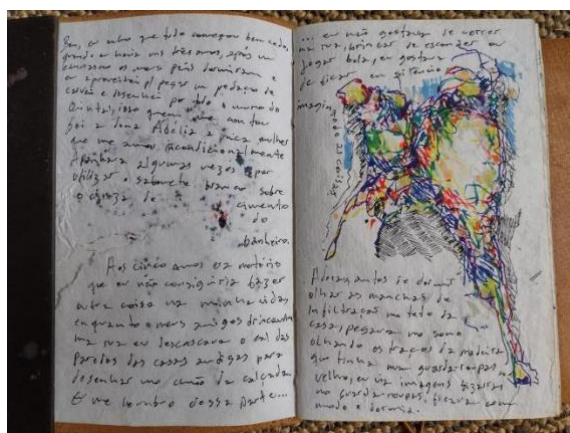 Bem, eu acho que tudo começou bem cedo,
quando eu havia uns três anos, após um
os meus pais dormiram e
eu aproveitei p/ pegar um pedaço de
carvão e desenhei por todo o muro do
Quintal, isso quem me contou
foi a dona Adélia a única mulher
que me amou incondicionalmente
Apanhara algumas vezes por
utilizar o sabonete branco sobre
o cinza do cimento
do
banheiro.
Aos cinco anos era notório
que eu não conseguiria fazer
outra coisa na minha vida,
enquanto os meus amigos brincavam
na rua eu descascava o cal das
Paredes das casas antigas para
desenhar no chão da calçada
E me lembro dessa parte...
... eu não gostava de correr
na rua, brincar de esconder ou
jogar bola, eu gostava
de ficar em silêncio
imaginando as coisas
Adorava antes de dormir
olhar as manchas de
infiltração no teto da
casa, pegava no sono
olhando os traços da madeira
que tinha num guarda-roupas
velho, eu via imagens bizarras
no guarda-roupas, ficava com
medo e dormia.